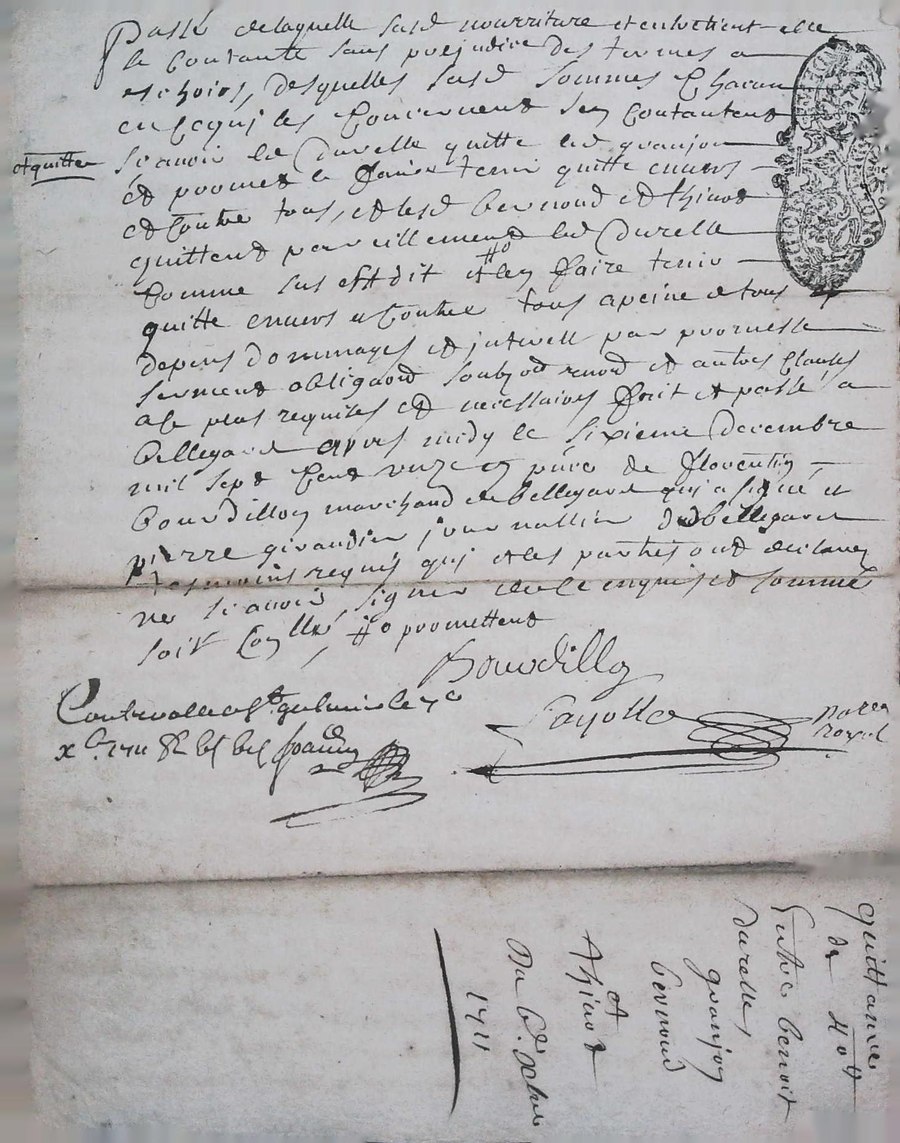 passé de laquelle susd nourriture et entretient elle
se contante sans prejudice des termes a
eschoirs, desquelles susd sommes Chacun
en cequi les Concernent sen Contantent
et quitte
scavoir led Durelle quitte led granjon
et promet le faire tenir quitte envers
et Contre tous, et lesd bernond et thinod
quittent pareillement led Durelle
Comme sus est dit # et len faire tenir
quitte envers et Contre tous a peine de tous
depens dommages et interest par promesse
serment obligaon soubzon renond et autres Clauses
a ce plus requises et necessaires fait et passé a
bellegarde apres midy le sixieme decembre
mil sept Cent unze en pnce de florentin
bourdillon marchand de bellegarde qui a signé et
pierre giraudier journallier dud bellegarde
tesmoins requis qui et les parties ont declaré
ne scavoir signer de ce enquis et sommé
soit Coll # promettent
bourdillon
Controlle a St galmier le 7e
xbre 1711 R
Payolle notre
Royal
quittance
de 40 tt
Entre benoit
durelle
granjon
bernond
et
thinod
Du 6e xbre
1711